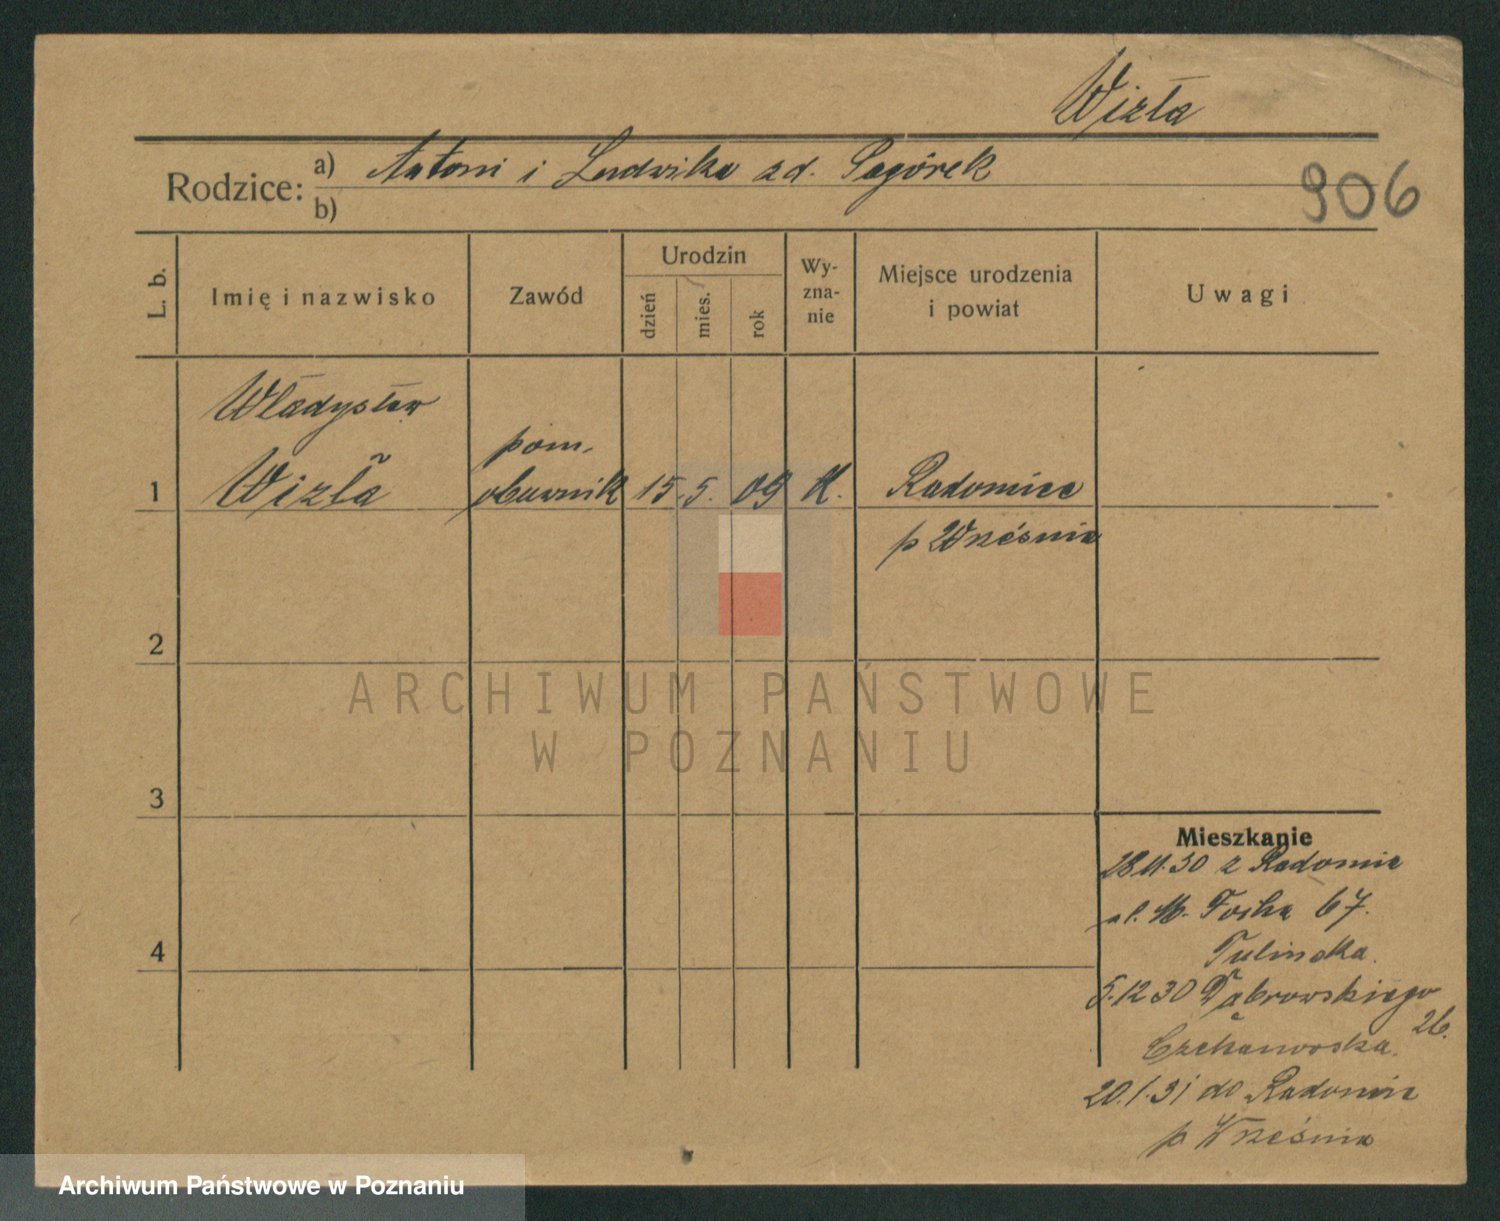 Wizła
Rodzice: a) Antoni i Ludwika zd. Pagórek
b)
906
L. b.
Imię i nazwisko
Zawód
Urodzin
dzień
mies.
rok
Wy-
zna-
nie
Miejsce urodzenia
i powiat
Uwagi
Władysław
pom.
1 Wizła obuwnik 15. 5. 09 K. Radomice
p Września
2
3
4
ARCHIWUM PAŃSTWOWE
W POZNANIU
Mieszkanie
28.11.30 z Radomic
ul. M. Focha 67.
5.12 30 Dąbrowskiego
26.
20.1.31 do Radomic
p Września
Archiwum Państwowe w Poznaniu